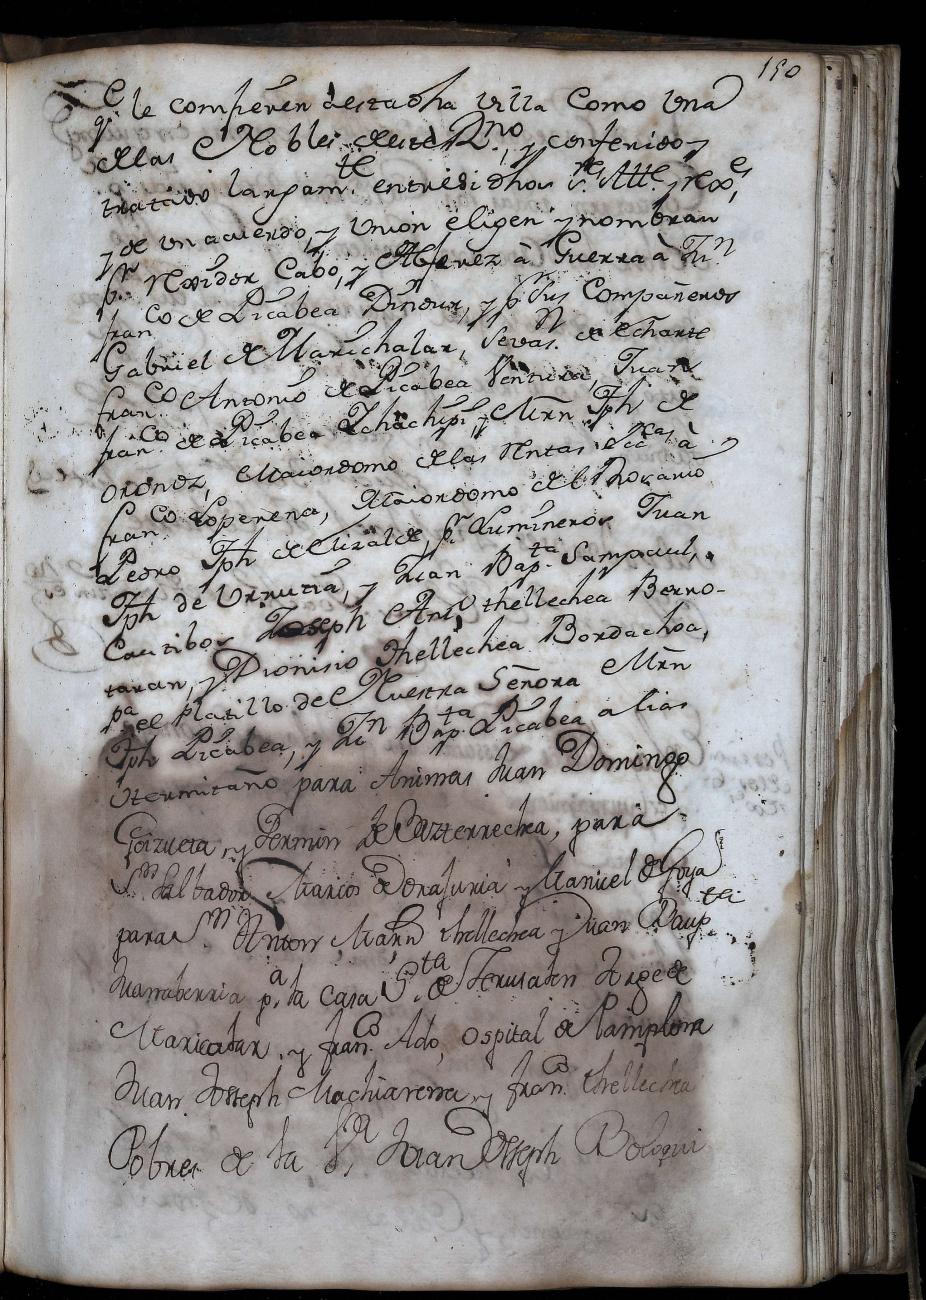 190
q.e le compêren desta dha Villa Como una
de las Nobles de este R.no, y conferido, y
tratado largam.te entre si dhos S.res Att.e, y rex.es,
y de un acuerdo, y Union eligen y nombran
p.r Rexidor Cabo, y Alferez à Guerra à Ju.n
fran.co de Licabea Dindur, y p.r sus Compañeros
Gabriel de Marichalar, Sevas.n de Echarte
fran.co Antonio de Licabea Ventura, Juan
fran.co de Licabea Ichachipi, y Mrn Jph de
Ordnoz, Maiordomo de las Rentas à
fran.co Loperena, Maiordomo del Rosario
Pedro Jph de Elizalde, p.r Lumineros Juan
Jph de Urrutia, y Juan Bap.ta Sampaul,
Cautibos Joseph Ant.o thellechea Berro-
taran, y Dionisio thellechea Bordachoa,
p.a el Platillo de Nuestra Señora Mrn
Jph Licabea, y Ju.n Bap.ta Licabea alias
Itermitaño para Animas Juan Domingo
Goizueta, y Fermin de Bazterrechea, para
S.n Salbador Marcos de y Manuel de Goya
para S.n Anton, Marn thellechea y Juan Baup.ta
p.a la Casa S.ta de Jerusalen Jorge de
Maricalar, y fran.co Ado, Ospital de Pamplona
Juan Joseph Machiarena, y fran.co thellechea
Pobres de la V.a, Juan Joseph